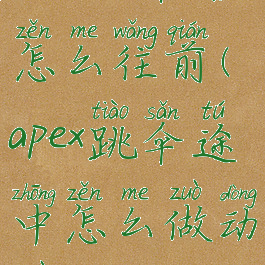 zěn me wǎng qián
怎么往前(
tiào sǎn tú
apex跳伞途
zhōng zěn me zuò dòng
中怎么做动